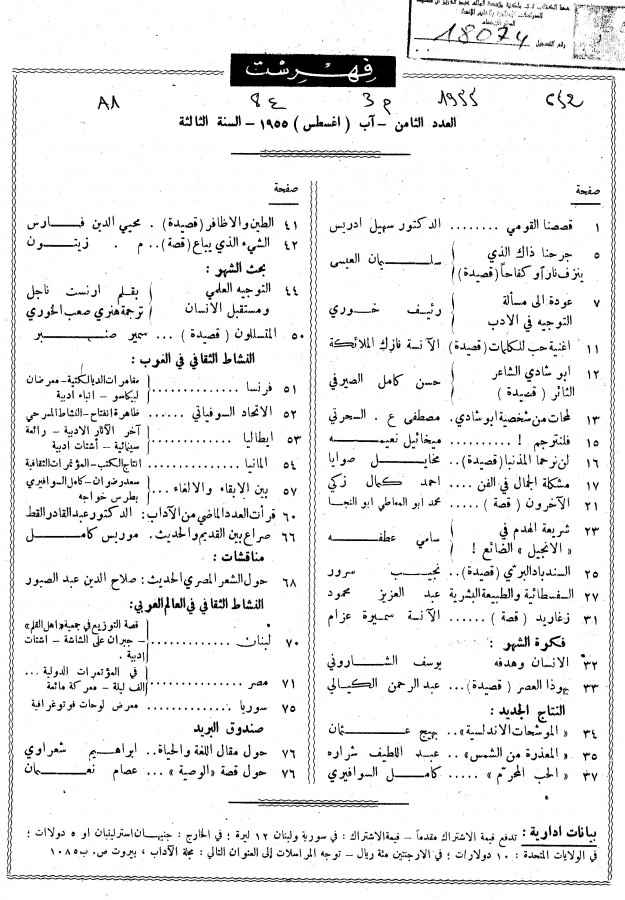 رقم التسجيل 18074
فهرست
العدد الثامن – آب (اغسطس) ١٩٥٥ – السنة الثالثة
صفحة
١ قصصنا القومي ........ الدكتور سهيل ادريس
٥ جرحنا ذاك الذي
ينزف ناراً وكفاحاً (قصيدة) سليمان العيسى
٧ عودة الى مسألة
التوجيه في الادب رئيف خوري
١١ اغنية حب للكلمات (قصيدة) الآنسة نازك الملائكة
١٢ ابو شادي الشاعر
الثائر (قصيدة) حسن كامل الصيرفي
١٣ لمحات من شخصية ابو شادي. مصطفى ع. السحرتي
١٥ فلنترجم ! .......... ميخائيل نعيمه
١٦ لن نرحما المذنبا (قصيدة).. مخايل صوايا
١٧ مشكلة الجمال في الفن .... احمد كمال زكي
٢١ الآخرون (قصة) ..... محمد ابو المعاطي ابو النجا
٢٣ شريعة الهدم في
« الانجيل » الضائع ! سامي عطفه
٢٥ السندباد البري (قصيدة).. نجيب سرور
٢٧ السفسطائية والطبيعة البشرية عبد العزيز محمود
٣١ زغاريد (قصة) ...... الآنسة سميرة عزام
فكرة الشهر :
٣٢ الانسان وهدفه يوسف الشاروني
٣٣ يهوذا العصر (قصيدة)... عبد الرحمن الكيالي
النتاج الجديد :
٣٤ « الموشحات الاندلسية».. بهيج عثمان
٣٥ « المعذرة من الشمس».. عبد اللطيف شراره
٣٧ « الحب المحرّم » ..... كامل السوافيري
صفحة
٤١ الطين والاظافر (قصيدة) . محيي الدين فارس
٤٢ الشيء الذي يباع (قصة).. م . زيتون
بحث الشهر :
٤٤ التوجيه العلمي
ومستقبل الانسان
بقلم ارنست ناجل
ترجمة هنري صعب الخوري
٥٠ المتسللون (قصيدة) ... سمير صنبر
النشاط الثقافي في الغرب :
٥١ فرنسا ..............
مغامرات الديالكتية – معرضان
لبيكاسو – انباء ادبية
٥٢ الاتحاد السوفياتي .. ظاهرة انفتاح – النشاط المسرحي
٥٣ ايطاليا ..............
آخر الآثار الادبية – رائعة
سينمائية – أشتات ادبية
٥٤ المانيا .............. انتاج الكتب – المؤتمرات الثقافية
٥٧ بين الابقاء والالغاء...
سعد رضوان – كامل السوافيري
بطرس خواجه
٦٠ قرأت العدد الماضي من الآداب: الدكتور عبد القادر القط
٦٦ صراع بين القديم والحديث. موريس كامل
مناقشات :
٦٨ حول الشعر المصري الحديث: صلاح الدين عبد الصبور
النشاط الثقافي في العالم العربي:
٧٠ لبنان ..............
قصة التوزيع في جمعية «اهل القلم»
– جبران على الشاشة – اشتات
ادبية .
٧١ مصر ..............
في المؤتمرات الدولية ...
الف ليلة – معركة مائعة
٧٥ سوريا .............. معرض لوحات فوتوغرافية
صندوق البريد
٧٦ حول مقال اللغة والحياة.. ابراهيم شعراوي
٧٦ حول قصة «الوصية» ... عصام نعمان
بيانات ادارية : تدفع قيمة الاشتراك مقدماً – قيمة الاشتراك : في سورية ولبنان ١٢ ليرة ؛ في الخارج : جنيهان استرلينيان او ٥ دولارات ؛
في الولايات المتحدة : ١٠ دولارات ؛ في الارجنتين مئة ريال – توجه المراسلات إلى العنوان التالي : مجلة الآداب ، بيروت ص.ب ١٠٨٥